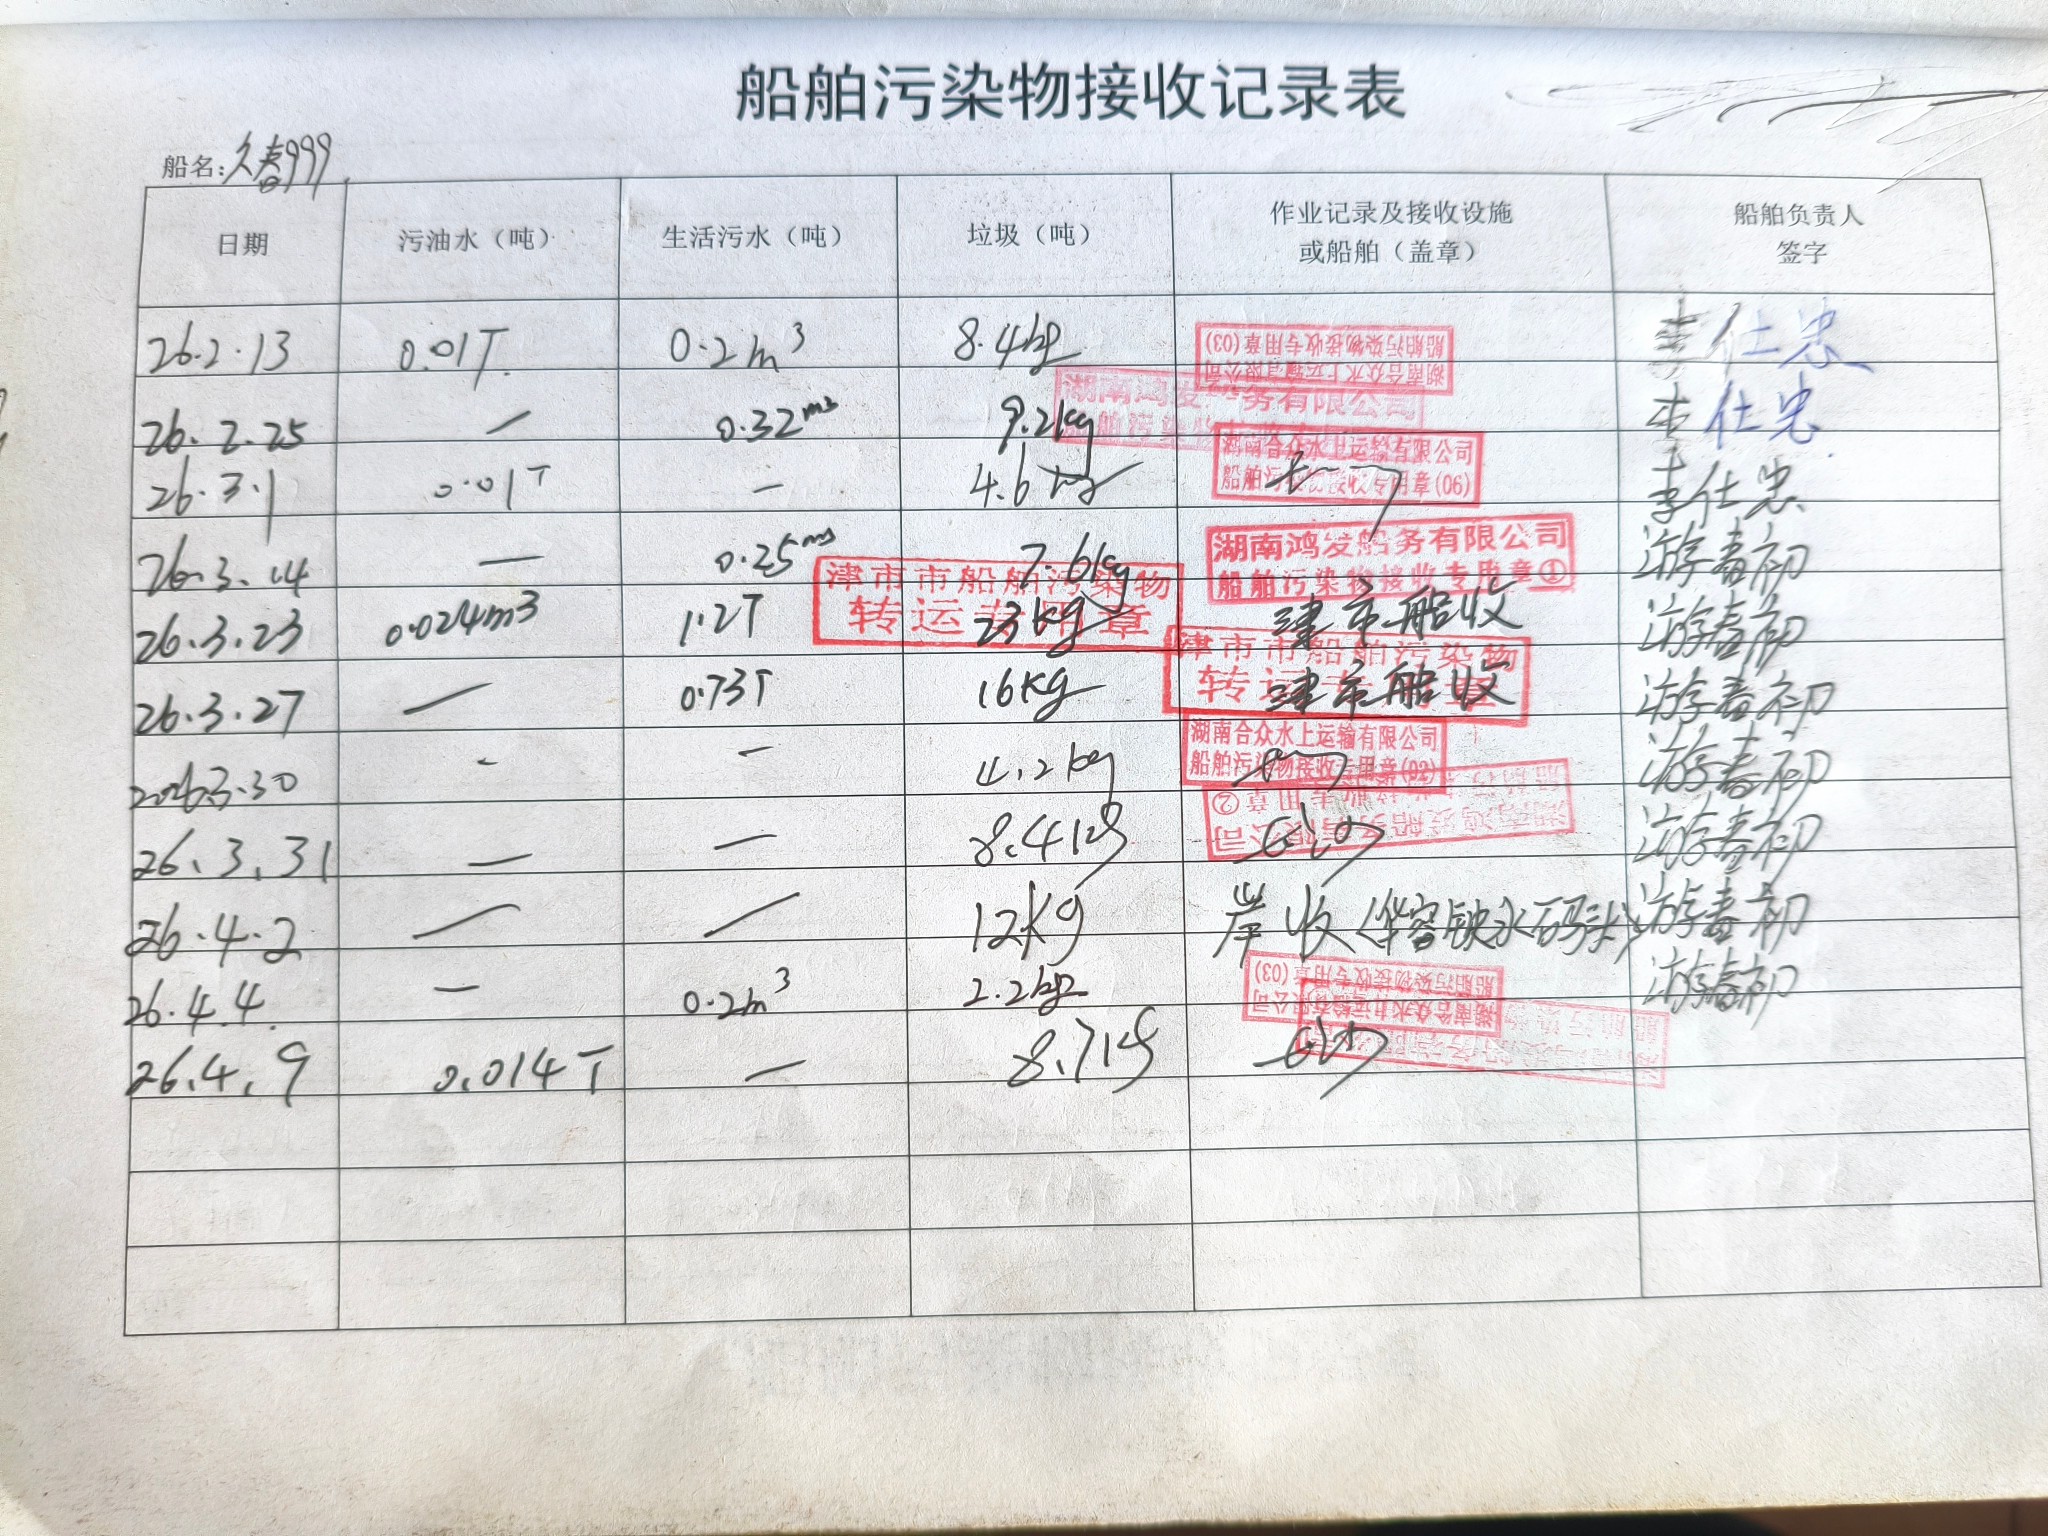 船舶污染物接收记录表
船名：久春999
日期 污油水（吨） 生活污水（吨） 垃圾（吨） 作业记录及接收设施或船舶（盖章） 船舶负责人签字
26.2.13 0.01T 0.2m³ 8.4kg 湖南合众水上运输有限公司 船舶污染物接收专用章(03) 李仕忠
26.2.25 — 0.32m³ 9.2kg 湖南鸿发船务有限公司 李仕忠
26.3.1 0.01T — 4.6kg 湖南合众水上运输有限公司 船舶污染物接收专用章(06) 李仕忠
26.3.14 — 0.25m³ 7.6kg 湖南鸿发船务有限公司 船舶污染物接收专用章① 游春初
26.3.23 0.024m3 1.2T 23kg 津市市船舶污染物 转运专用章 津市船收 游春初
26.3.27 — 0.73T 16kg 津市市船舶污染物 转运专用章 津市船收 游春初
2026.3.30 - — 4.2kg 湖南合众水上运输有限公司 船舶污染物接收专用章(03) 游春初
26.3.31 — — 8.4kg 湖南鸿发船务有限公司 船舶污染物接收专用章② 游春初
26.4.2 — — 12kg 岸收（华容 水码头） 游春初
26.4.4 — 0.2m³ 2.2kg 湖南合众水上运输有限公司 船舶污染物接收专用章(03) 游春初
26.4.9 0.014T — 8.7kg